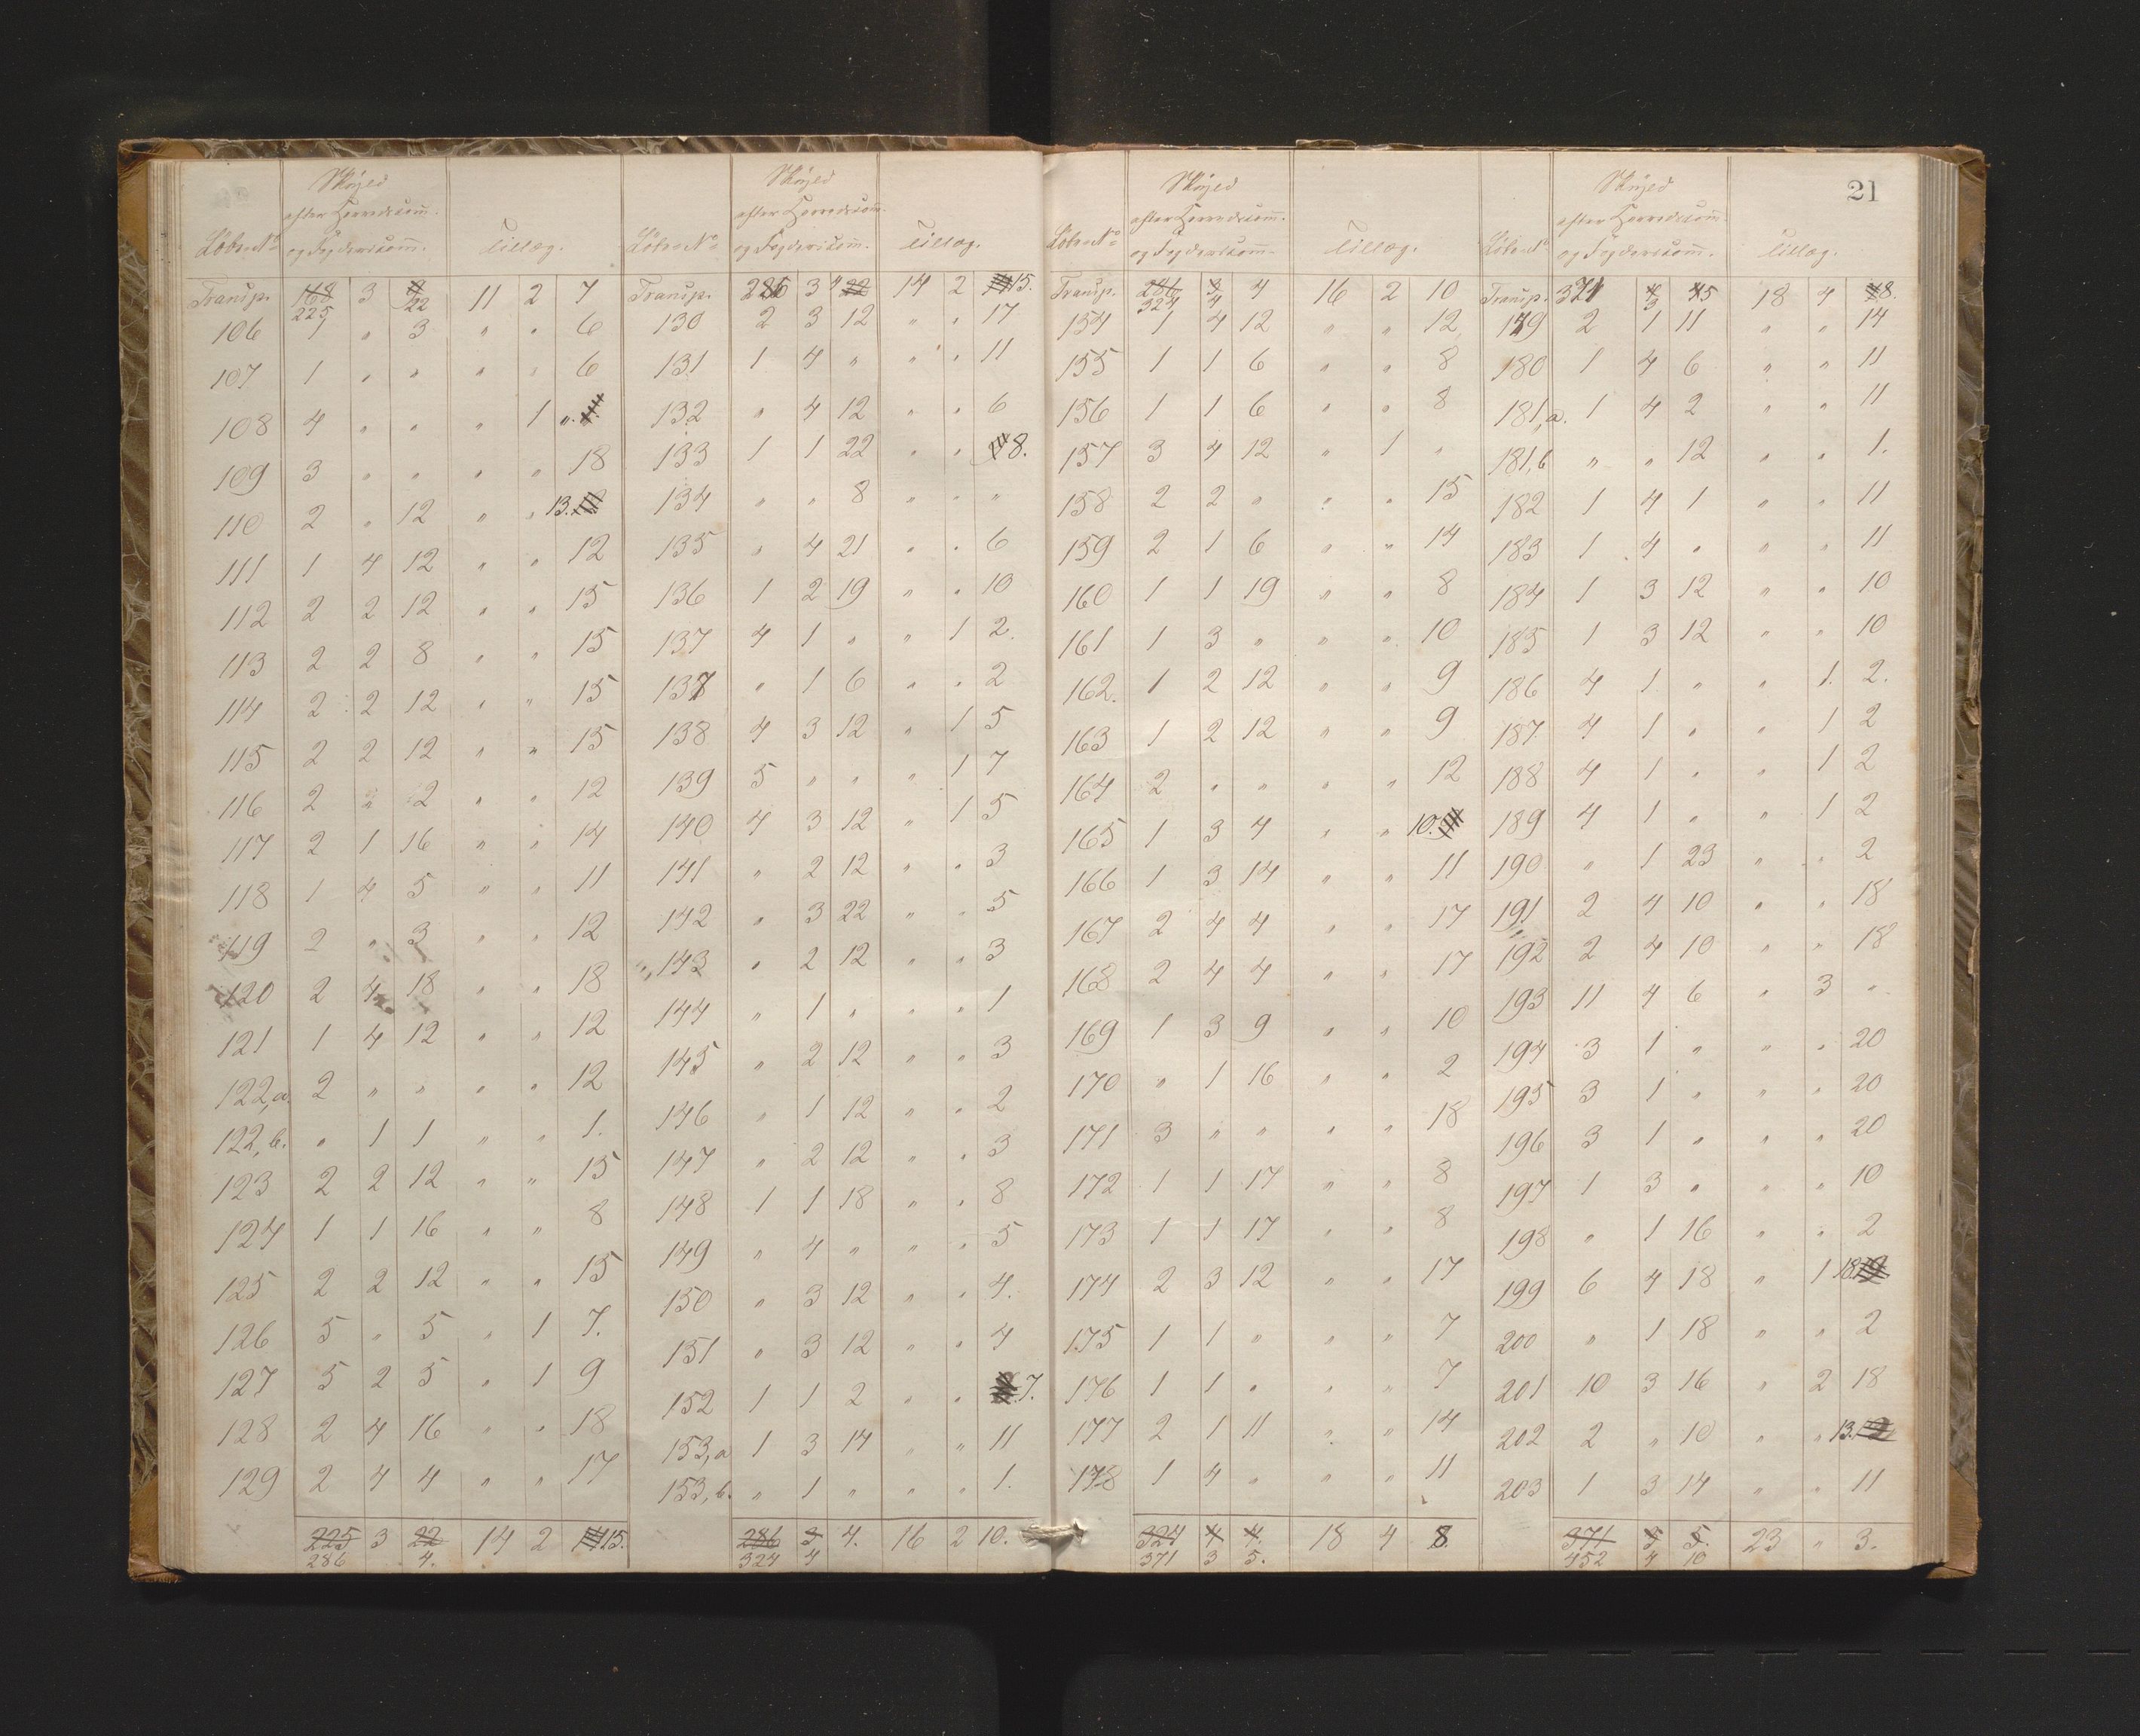 21
Løbe No | Skyld efter Herredscom̅. og Fogdericom̅. | Tillæg.
Transp. 168 225 | 3 | 22 | 11 | 2 | 7
106 | 1 | " | 3 | " | " | 6
107 | 1 | " | " | " | " | 6
108 | 4 | " | " | " | 1 | "
109 | 3 | " | " | " | " | 18
110 | 2 | " | 12 | " | " | 13.
111 | 1 | 4 | 12 | " | " | 12
112 | 2 | 2 | 12 | " | " | 15
113 | 2 | 2 | 8 | " | " | 15
114 | 2 | 2 | 12 | " | " | 15
115 | 2 | 2 | 12 | " | " | 15
116 | 2 | " | 2 | " | " | 12
117 | 2 | 1 | 16 | " | " | 14
118 | 1 | 4 | 5 | " | " | 11
119 | 2 | " | 3 | " | " | 12
120 | 2 | 4 | 18 | " | " | 18
121 | 1 | 4 | 12 | " | " | 12
122,a. | 2 | " | " | " | " | 12
122,b. | " | 1 | 1 | " | " | 1.
123 | 2 | 2 | 12 | " | " | 15
124 | 1 | 1 | 16 | " | " | 8
125 | 2 | 2 | 12 | " | " | 15
126 | 5 | " | 5 | " | 1 | 7.
127 | 5 | 2 | 5 | " | 1 | 9
128 | 2 | 4 | 16 | " | " | 18
129 | 2 | 4 | 4 | " | " | 17
225 286 | 3 | 22 4. | 14 | 2 | 15.
Løbe No | Skyld efter Herredscom̅. og Fogdericom̅. | Tillæg.
Transp. 286 | 3 | 4 22 | 14 | 2 | 15.
130 | 2 | 3 | 12 | " | " | 17
131 | 1 | 4 | " | " | " | 11
132 | " | 4 | 12 | " | " | 6
133 | 1 | 1 | 22 | " | " | 8.
134 | " | " | 8 | " | " | "
135 | " | 4 | 21 | " | " | 6
136 | 1 | 2 | 19 | " | " | 10
137 | 4 | 1 | " | " | 1 | 2.
137 | " | 1 | 6 | " | " | 2
138 | 4 | 3 | 12 | " | 1 | 5
139 | 5 | " | " | " | 1 | 7
140 | 4 | 3 | 12 | " | 1 | 5
141 | " | 2 | 12 | " | " | 3
142 | " | 3 | 22 | " | " | 5
143 | " | 2 | 12 | " | " | 3
144 | " | 1 | " | " | " | 1
145 | " | 2 | 12 | " | " | 3
146 | " | 1 | 12 | " | " | 2
147 | " | 2 | 12 | " | " | 3
148 | 1 | 1 | 18 | " | " | 8
149 | " | 4 | " | " | " | 5
150 | " | 3 | 12 | " | " | 4.
151 | " | 3 | 12 | " | " | 4
152 | 1 | 1 | 2 | " | " | 7.
153,a | 1 | 3 | 14 | " | " | 11
153,b. | " | 1 | " | " | " | 1.
286 324 | 3 4 | 4. | 16 | 2 | 10.
Løbe No | Skyld efter Herredscom̅. og Fogdericom̅. | Tillæg.
Transp. 286 324 | 3 4 | 4 | 16 | 2 | 10
154 | 1 | 4 | 12 | " | " | 12
155 | 1 | 1 | 6 | " | " | 8
156 | 1 | 1 | 6 | " | " | 8
157 | 3 | 4 | 12 | " | 1 | "
158 | 2 | 2 | " | " | " | 15
159 | 2 | 1 | 6 | " | " | 14
160 | 1 | 1 | 19 | " | " | 8
161 | 1 | 3 | " | " | " | 10
162. | 1 | 2 | 12 | " | " | 9
163 | 1 | 2 | 12 | " | " | 9
164 | 2 | " | " | " | " | 12
165 | 1 | 3 | 4 | " | " | 10.
166 | 1 | 3 | 14 | " | " | 11
167 | 2 | 4 | 4 | " | " | 17
168 | 2 | 4 | 4 | " | " | 17
169 | 1 | 3 | 9 | " | " | 10
170 | " | 1 | 16 | " | " | 2
171 | 3 | " | " | " | " | 18
172 | 1 | 1 | 17 | " | " | 8
173 | 1 | 1 | 17 | " | " | 8
174 | 2 | 3 | 12 | " | " | 17
175 | 1 | 1 | " | " | " | 7
176 | 1 | 1 | " | " | " | 7
177 | 2 | 1 | 11 | " | " | 14
178 | 1 | 4 | " | " | " | 11
324 371 | 4 3 | 4. 5. | 18 | 4 | 8.
Løbe No | Skyld efter Herredscom̅. og Fogdericom̅. | Tillæg.
Transp. 371 | 4 3 | 5 | 18 | 4 | 8.
179 | 2 | 1 | 11 | " | " | 14
180 | 1 | 4 | 6 | " | " | 11
181,a. | 1 | 4 | 2 | " | " | 11
181,b | " | " | 12 | " | " | 1.
182 | 1 | 4 | 1 | " | " | 11
183 | 1 | 4 | " | " | " | 11
184 | 1 | 3 | 12 | " | " | 10
185 | 1 | 3 | 12 | " | " | 10
186 | 4 | 1 | " | " | 1. | 2.
187 | 4 | 1 | " | " | 1 | 2
188 | 4 | 1 | " | " | 1 | 2
189 | 4 | 1 | " | " | 1 | 2
190 | " | 1 | 23 | " | " | 2
191 | 2 | 4 | 10 | " | " | 18
192 | 2 | 4 | 10 | " | " | 18
193 | 11 | 4 | 6 | " | 3 | "
194 | 3 | 1 | " | " | " | 20
195 | 3 | 1 | " | " | " | 20
196 | 3 | 1 | " | " | " | 20
197 | 1 | 3 | " | " | " | 10
198 | " | 1 | 16 | " | " | 2
199 | 6 | 4 | 18 | " | 1 | 18. 19
200 | " | 1 | 18 | " | " | 2
201 | 10 | 3 | 16 | " | 2 | 18
202 | 2 | " | 10 | " | " | 13. 12
203 | 1 | 3 | 14 | " | " | 11
371 452 | 3 4 | 5. 10 | 23 | " | 3.